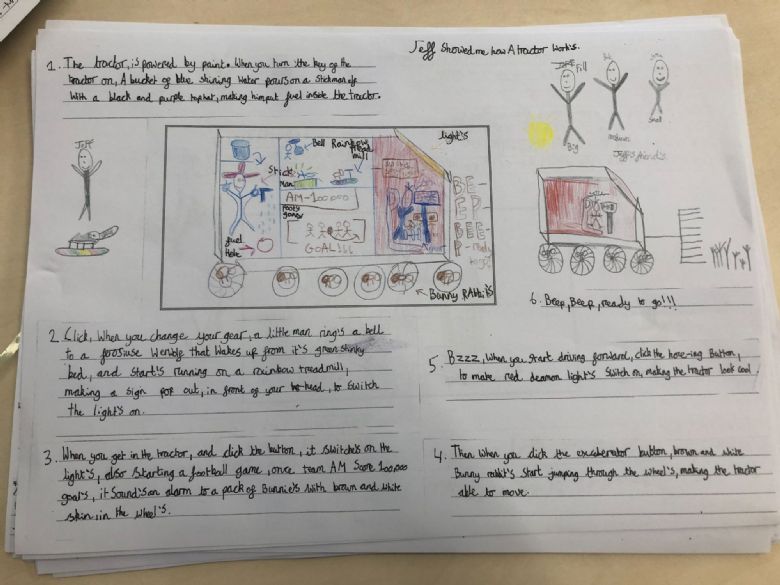 Jeff Showed me how A tractor works.
1. The tractor, is powered by paint. When you turn the key of the
tractor on, A bucket of blue shining water pours on a Stickman elf
with a black and purple tophat, making him put fuel inside the tractor.
Jeff
Fill
Big
medium
Small
Jeff's friend's
Bell
Rainbow
tread
mill
light's
Stick
Man
AM-100,000
footy
game
GOAL!!!
fuel
Hole
BEE-
P-ready
to go
Bunny RAbbit's
2. Click, When you change your gear, a little man ring's a bell
to a ferosiuse Wendlf that wakes up from it's green stinky
bed, and start's running on a rainbow treadmill,
making a sign pop out, in front of your head, to switch
the light's on.
3. When you get in the tractor, and click the button, it switches on the
light's, also starting a football game, once team AM Score 100,000
goal's, it Sound's an alarm to a pack of Bunnie's with brown and white
skin, in the wheel's.
6. Beep, Beep, ready to go!!!
5. Bzzz, When you start driving forward, click the hove-ing Button,
to make red deamon light's switch on, making the tractor look cool.
4. Then when you click the excaberator button, brown and white
Bunny rabbit's start jumping through the wheel's, making the tractor
able to move.